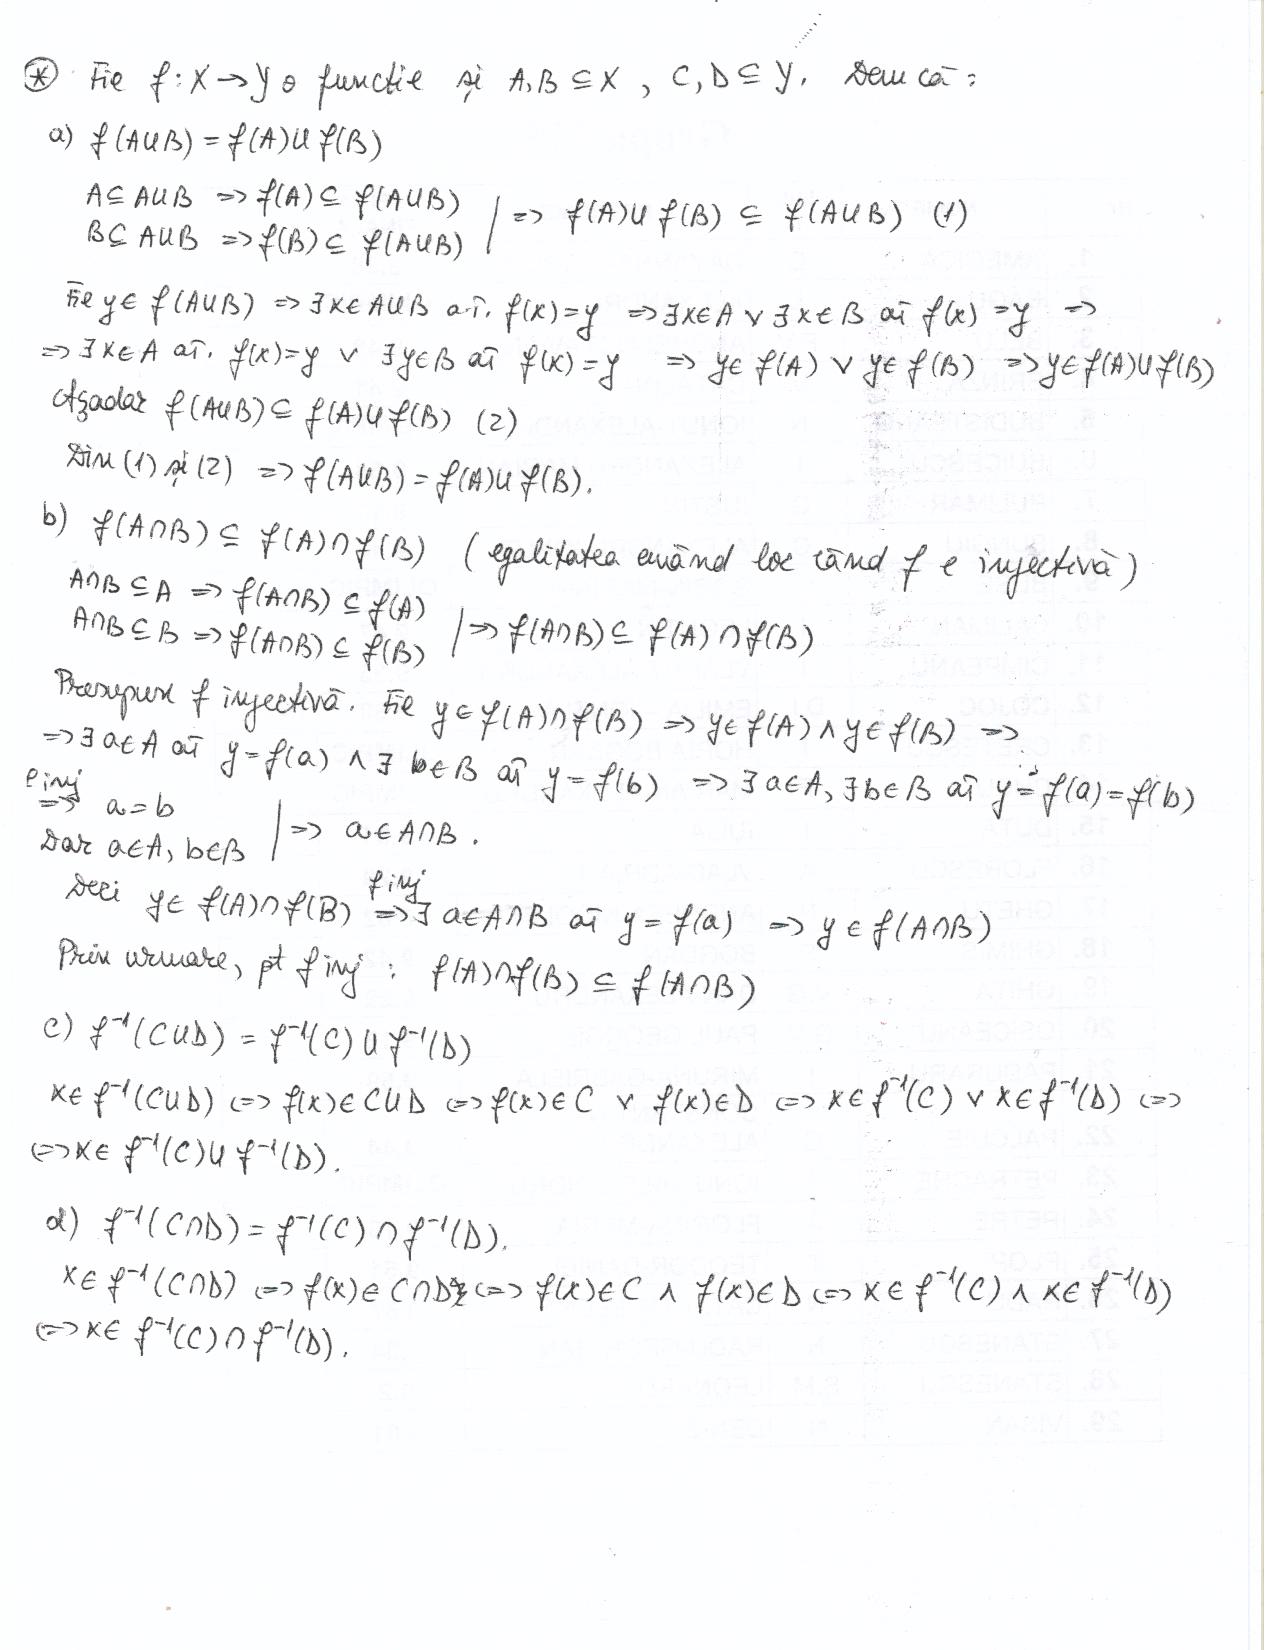 ⊛ Fie f: X → Y o functie și A, B ⊆ X, C, D ⊆ Y. Dem că:
a) f(A∪B) = f(A)∪f(B)
A⊆A∪B => f(A)⊆f(A∪B)
B⊆A∪B => f(B)⊆f(A∪B) | => f(A)∪f(B) ⊆ f(A∪B) (1)
Fie y∈f(A∪B) => ∃x∈A∪B a.î. f(x)=y => ∃x∈A ∨ ∃x∈B aî f(x)=y =>
=> ∃x∈A aî. f(x)=y ∨ ∃y∈B aî f(x)=y => y∈f(A) ∨ y∈f(B) => y∈f(A)∪f(B)
Așadar f(A∪B)⊆f(A)∪f(B) (2)
Din (1) și (2) => f(A∪B)=f(A)∪f(B).
b) f(A∩B) ⊆ f(A)∩f(B) (egalitatea având loc când f e injectivă)
A∩B⊆A => f(A∩B)⊆f(A)
A∩B⊆B => f(A∩B)⊆f(B) | => f(A∩B)⊆f(A)∩f(B)
Presupun f injectivă. Fie y∈f(A)∩f(B) => y∈f(A) ∧ y∈f(B) =>
=> ∃a∈A aî y=f(a) ∧ ∃b∈B aî y=f(b) => ∃a∈A, ∃b∈B aî y=f(a)=f(b)
f inj
=> a=b
Dar a∈A, b∈B | => a∈A∩B.
Deci y∈f(A)∩f(B) f inj => ∃a∈A∩B aî y=f(a) => y∈f(A∩B)
Prin urmare, pt f inj: f(A)∩f(B)⊆f(A∩B)
c) f⁻¹(C∪D) = f⁻¹(C)∪f⁻¹(D)
x∈f⁻¹(C∪D) <=> f(x)∈C∪D <=> f(x)∈C ∨ f(x)∈D <=> x∈f⁻¹(C) ∨ x∈f⁻¹(D) <=>
<=> x∈f⁻¹(C)∪f⁻¹(D).
d) f⁻¹(C∩D) = f⁻¹(C)∩f⁻¹(D).
x∈f⁻¹(C∩D) <=> f(x)∈C∩D <=> f(x)∈C ∧ f(x)∈D <=> x∈f⁻¹(C) ∧ x∈f⁻¹(D)
<=> x∈f⁻¹(C)∩f⁻¹(D).